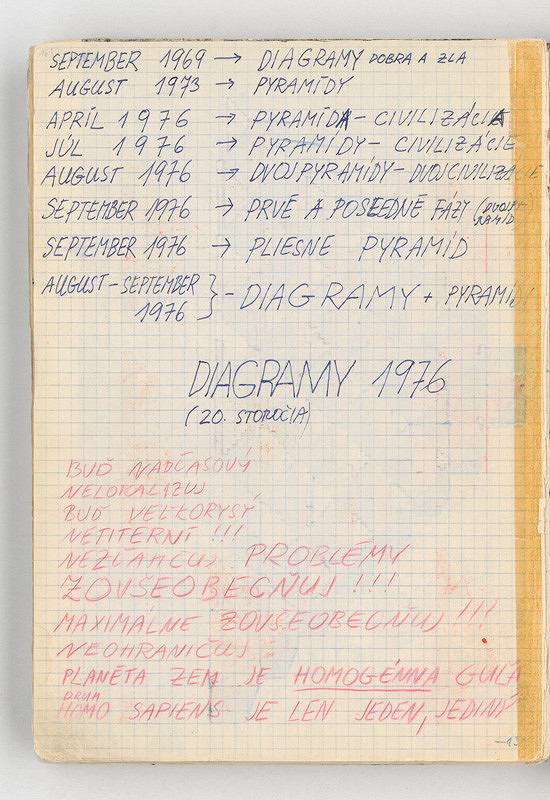 SEPTEMBER 1969 → DIAGRAMY DOBRA A ZLA
AUGUST 1973 → PYRAMÍDY
APRÍL 1976 → PYRAMÍDA – CIVILIZÁCIA
JÚL 1976 → PYRAMIDY – CIVILIZÁCIE
AUGUST 1976 → DVOJPYRAMÍDY – DVOJCIVILIZÁCIE
SEPTEMBER 1976 → PRVÉ A POSLEDNÉ FÁZY
SEPTEMBER 1976 → PLIESNE PYRAMÍD
AUGUST – SEPTEMBER
1976 } – DIAGRAMY + PYRAMÍDY
DIAGRAMY 1976
(20. STOROČIA)
BUĎ NADČASOVÝ
NELOKALIZUJ
BUĎ VEĽKORYSÝ
NETITERNÍ !!!
NEZĽAHČUJ PROBLÉMY
ZOVŠEOBECŇUJ !!!
MAXIMÁLNE ZOVŠEOBECŇUJ !!!
NEOHRANIČUJ
PLANÉTA ZEM JE HOMOGÉNNA GUĽA
DRUH
HOMO SAPIENS JE LEN JEDEN, JEDINÝ